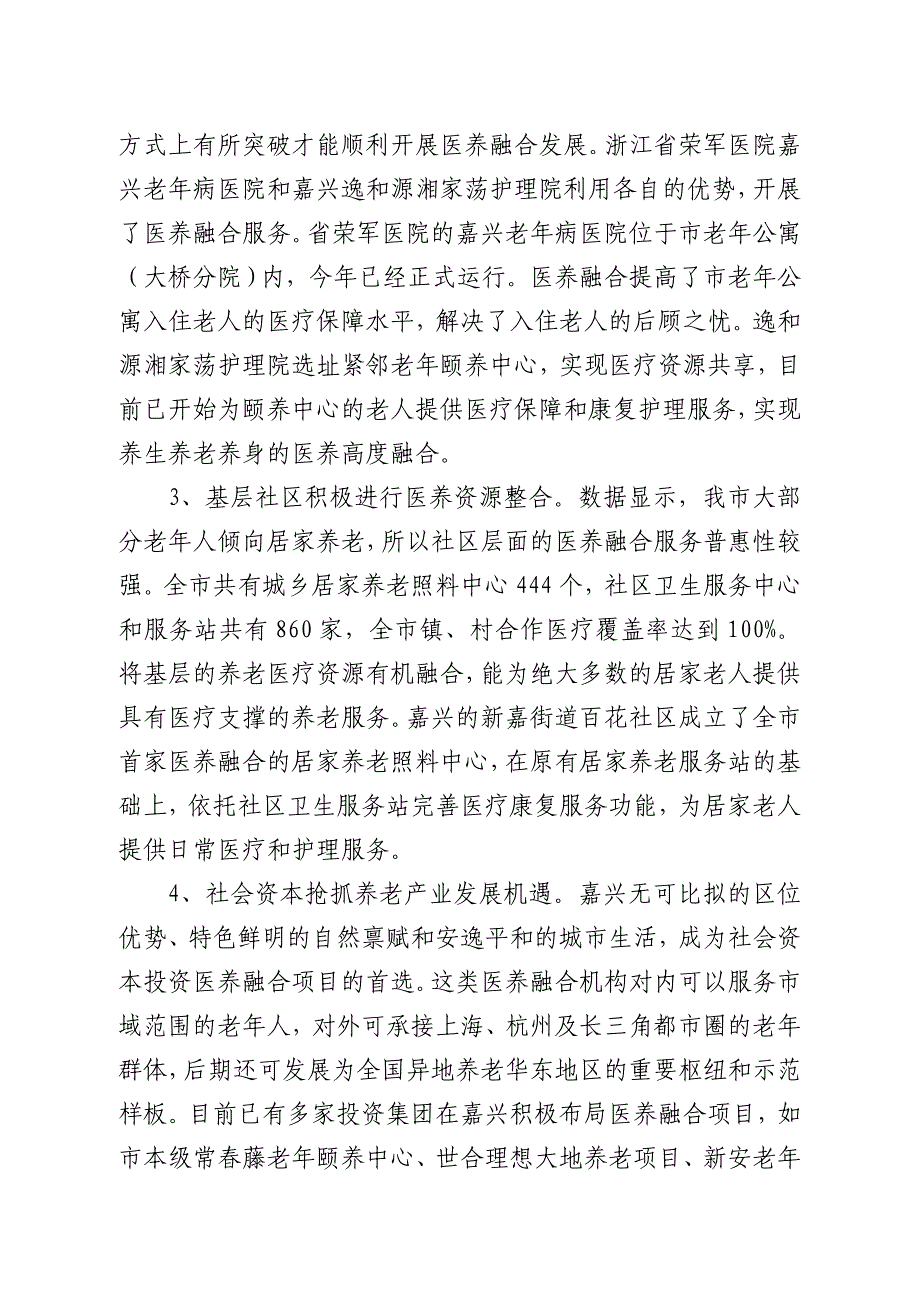 方式上有所突破才能顺利开展医养融合发展。浙江省荣军医院嘉
兴老年病医院和嘉兴逸和源湘家荡护理院利用各自的优势，开展
了医养融合服务。省荣军医院的嘉兴老年病医院位于市老年公寓
（大桥分院）内，今年已经正式运行。医养融合提高了市老年公
寓入住老人的医疗保障水平，解决了入住老人的后顾之忧。逸和
源湘家荡护理院选址紧邻老年颐养中心，实现医疗资源共享，目
前已开始为颐养中心的老人提供医疗保障和康复护理服务，实现
养生养老养身的医养高度融合。
3、基层社区积极进行医养资源整合。数据显示，我市大部
分老年人倾向居家养老，所以社区层面的医养融合服务普惠性较
强。全市共有城乡居家养老照料中心 444 个，社区卫生服务中心
和服务站共有 860 家，全市镇、村合作医疗覆盖率达到 100%。
将基层的养老医疗资源有机融合，能为绝大多数的居家老人提供
具有医疗支撑的养老服务。嘉兴的新嘉街道百花社区成立了全市
首家医养融合的居家养老照料中心，在原有居家养老服务站的基
础上，依托社区卫生服务站完善医疗康复服务功能，为居家老人
提供日常医疗和护理服务。
4、社会资本抢抓养老产业发展机遇。嘉兴无可比拟的区位
优势、特色鲜明的自然禀赋和安逸平和的城市生活，成为社会资
本投资医养融合项目的首选。这类医养融合机构对内可以服务市
域范围的老年人，对外可承接上海、杭州及长三角都市圈的老年
群体，后期还可发展为全国异地养老华东地区的重要枢纽和示范
样板。目前已有多家投资集团在嘉兴积极布局医养融合项目，如
市本级常春藤老年颐养中心、世合理想大地养老项目、新安老年